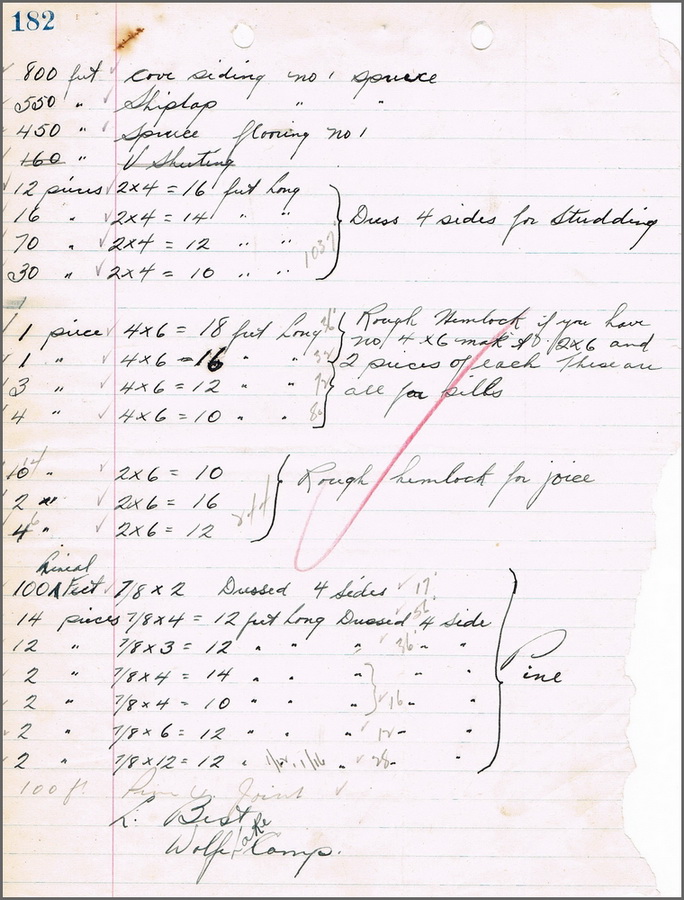 182
800 feet cove siding no 1 spruce
550 " Shiplap " "
450 " Spruce flooring no 1
160 " V Sheeting
12 pieces 2x4 = 16 feet Long
16 " 2x4 = 14 " "
70 " 2x4 = 12 " "
30 " 2x4 = 10 " "
Dress 4 sides for Studding
1037
1 piece 4x6 = 18 feet Long
1 " 4x6 = 16 "
3 " 4x6 = 12 " "
4 " 4x6 = 10 " "
Rough Hemlock if you have
no 4x6 make it 2x6 and
2 pieces of each These are
all for sills
10 " 2x6 = 10
2 " 2x6 = 16
4 " 2x6 = 12
Rough hemlock for joice
Lineal
100 Feet 7/8 x 2 Dressed 4 Sides 17
14 pieces 7/8x4 = 12 feet Long Dressed 4 Side 56
12 " 7/8x3 = 12 " " " 36 " "
2 " 7/8x4 = 14 " " " " "
2 " 7/8x4 = 10 " " " 16 " "
2 " 7/8x6 = 12 " " " 12 "
2 " 7/8x12 = 12 " 1/12. 1/16 " 28 "
Pine
100 ft Joint
L. Best
Wolfe Lake Camp.